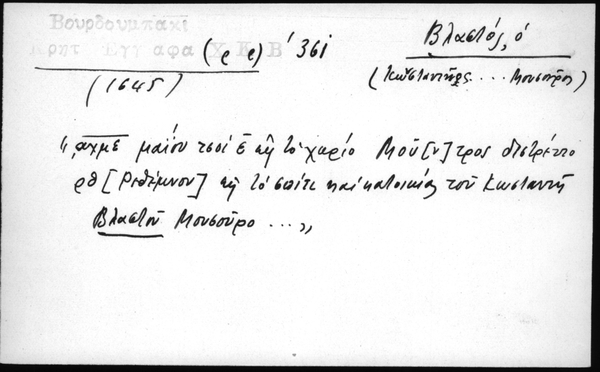 Βουρδουμπάκι
Κρητ Έγγραφα Χ Κ Β
(ρ ε) 361
(1645)
Βλαστός, ὁ
(Κωσταντῆς... Μουσοῦρος)
"͵αχμε μαΐου τσοὶ ε εἰς τὸ χωρίο Μού[ν]τρος διστρέττο
ρθ [Ρεθέμνου] εἰς τὸ σπίτι καὶ κατοικίας τοῦ Κωσταντῆ
Βλαστοῦ Μουσοῦρο ..."